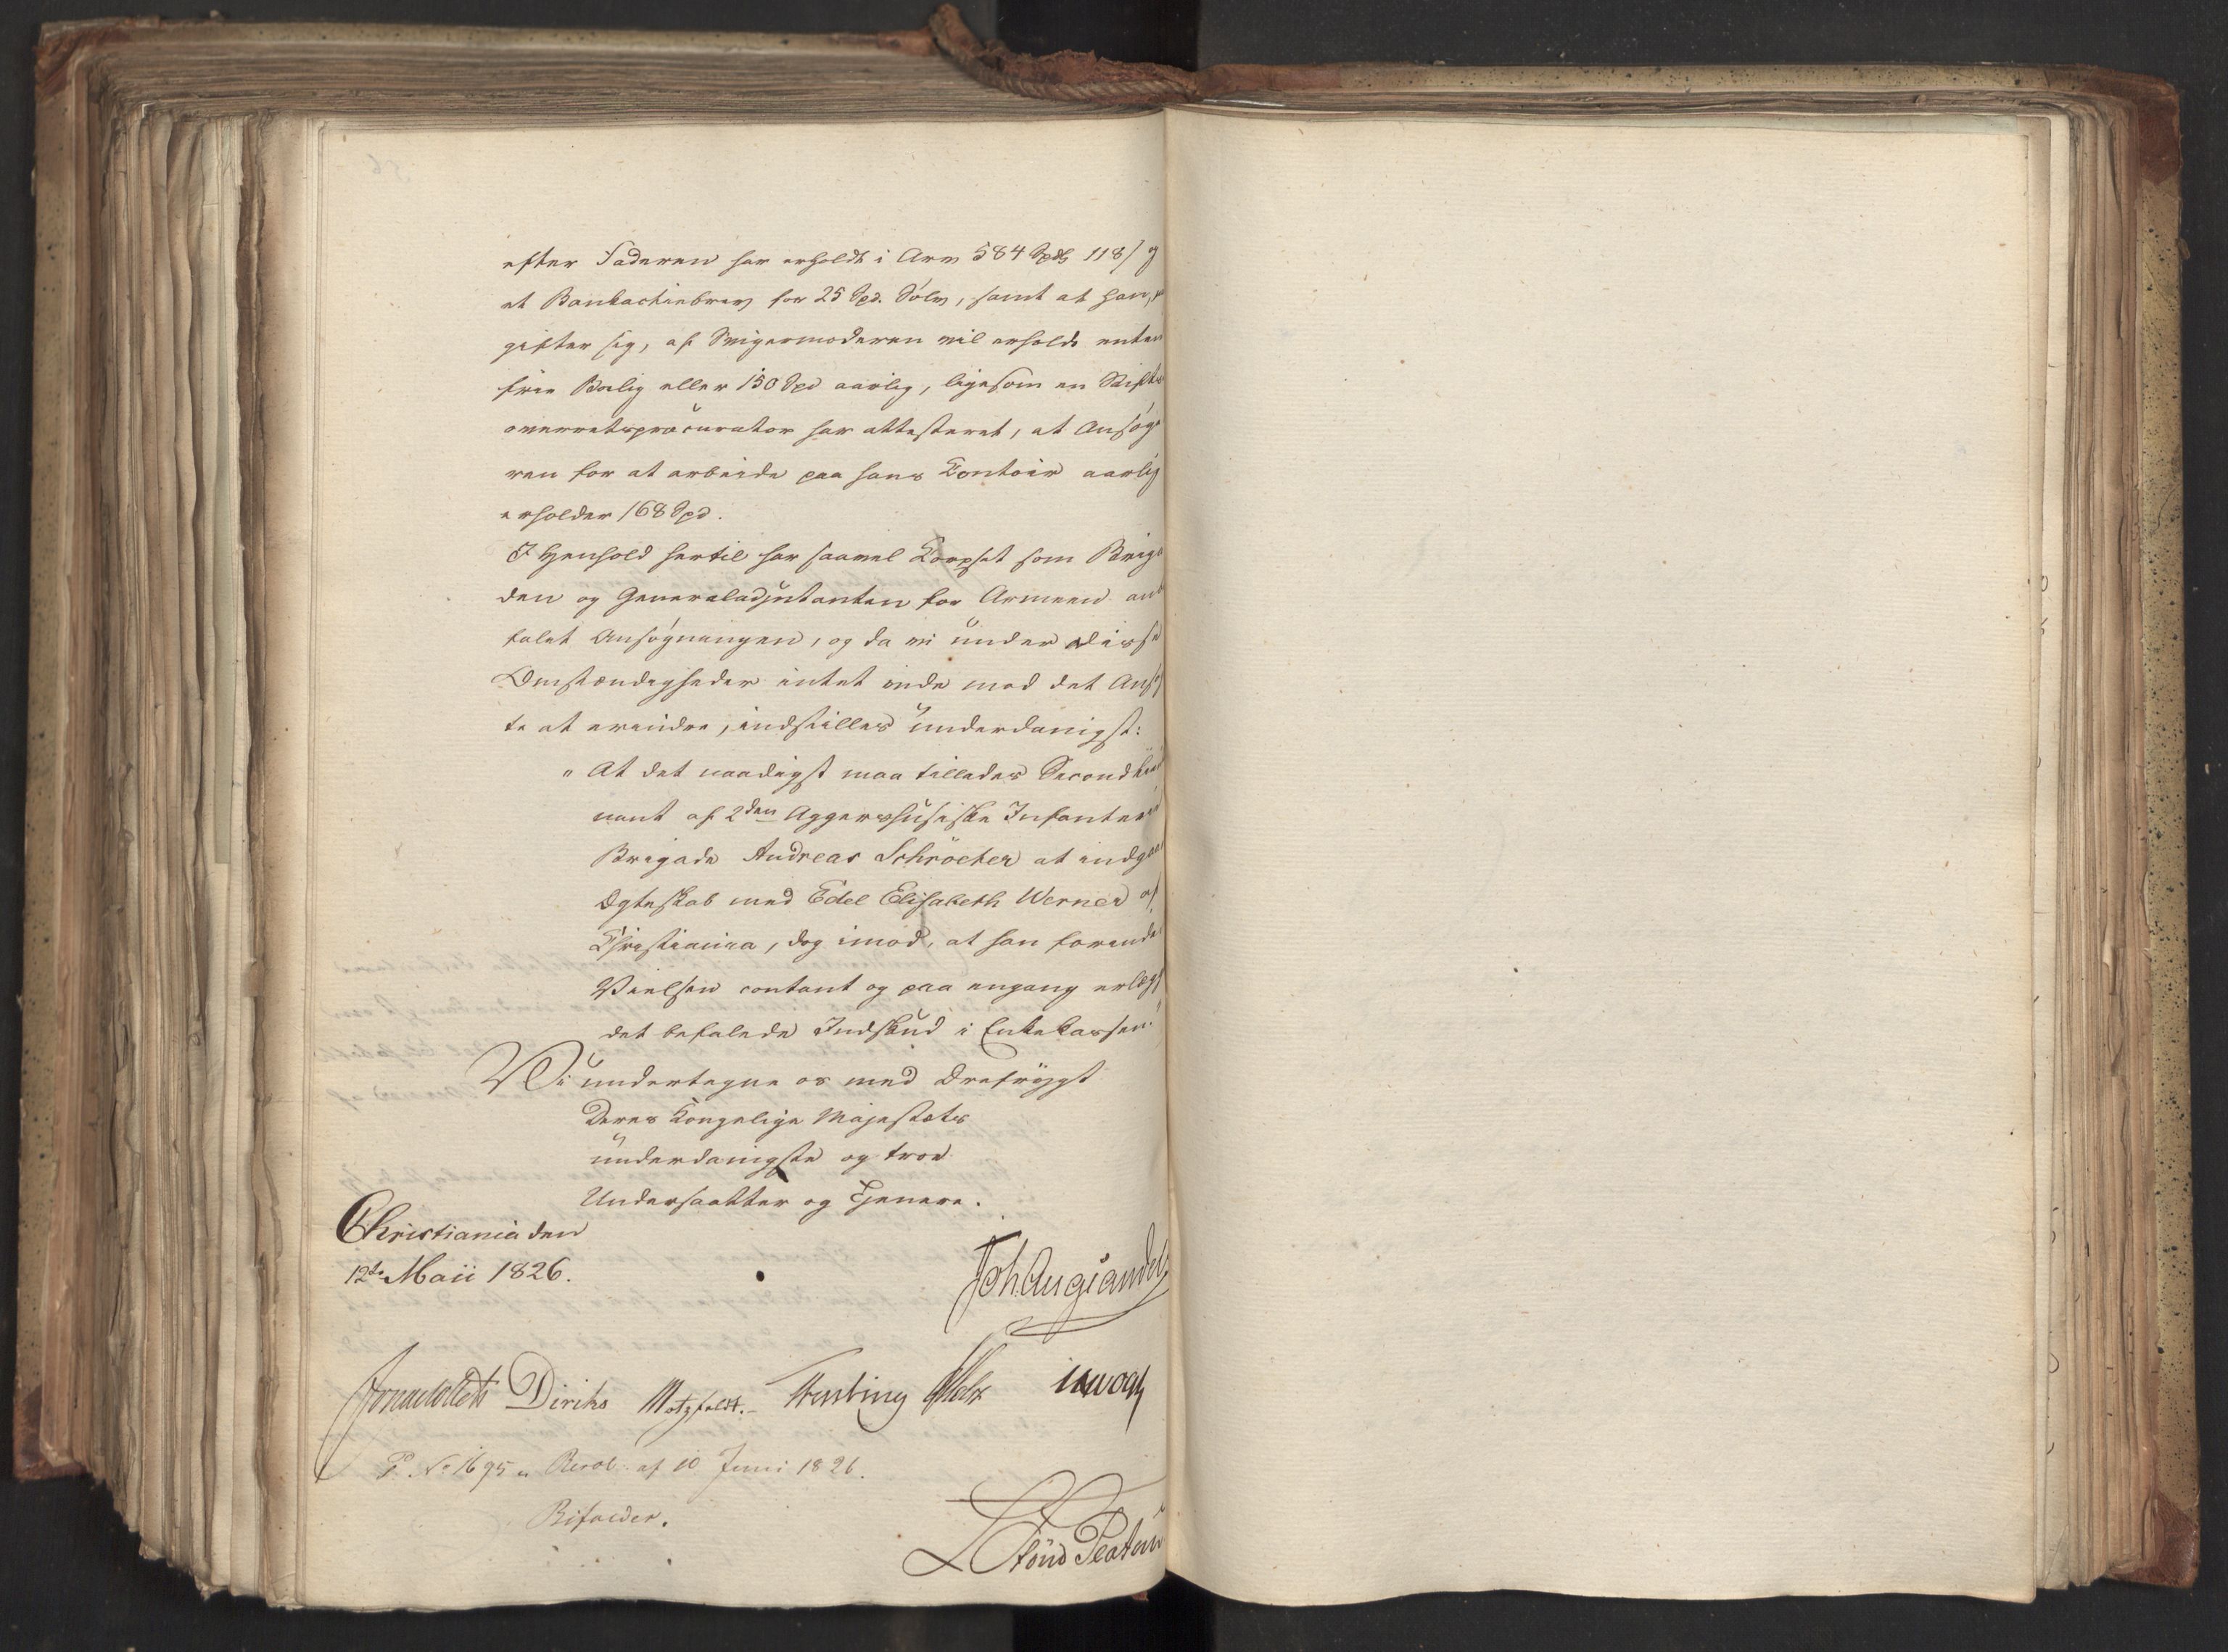 efter Faderen har erholdt i Arv 584 Spd 118 /. og
et Bankactiebrev for 25 Spd. Sølv, samt at han,
gifter sig, af Svigermoderen vil erholde enten
frie Bolig eller 150 Spd aarlig, ligesom en Stifts
overretsprocurator har attesteret, at Ansøge
ren for at arbeide paa hans Contoir aarlig
erholder 168 Spd.
I Henhold hertil har saavel Corpset som Briga
den og Generaladjutanten for Armeen anbe
falet Ansøgningen, og da vi under disse
Omstændigheder intet vide mod det Ansøg
te at erindre, indstilles underdanigst:
" At det naadigst maa tillades Secondlieut
nant af 2den Aggershusiske Infanterie
Brigade Andreas Schröeter at indgaae
Ægteskab med Edel Elisabeth Werner af
Christiania, dog imod, at han forinden
Vielsen contant og paa engang erlægge
det befalede Indskud i Enkekassen."
Vi undertegne os med Ærefrygt
Deres Kongelige Majestæts
underdanigste og troe
Undersaatter og Tjenere.
Christiania den
12te Maii 1826.
Joh Aug Sandels
Jonas Collett Diriks Motzfeldt. Krebs
P. No 1695 Resol. af 10 Juni 1826.
Bifalder.